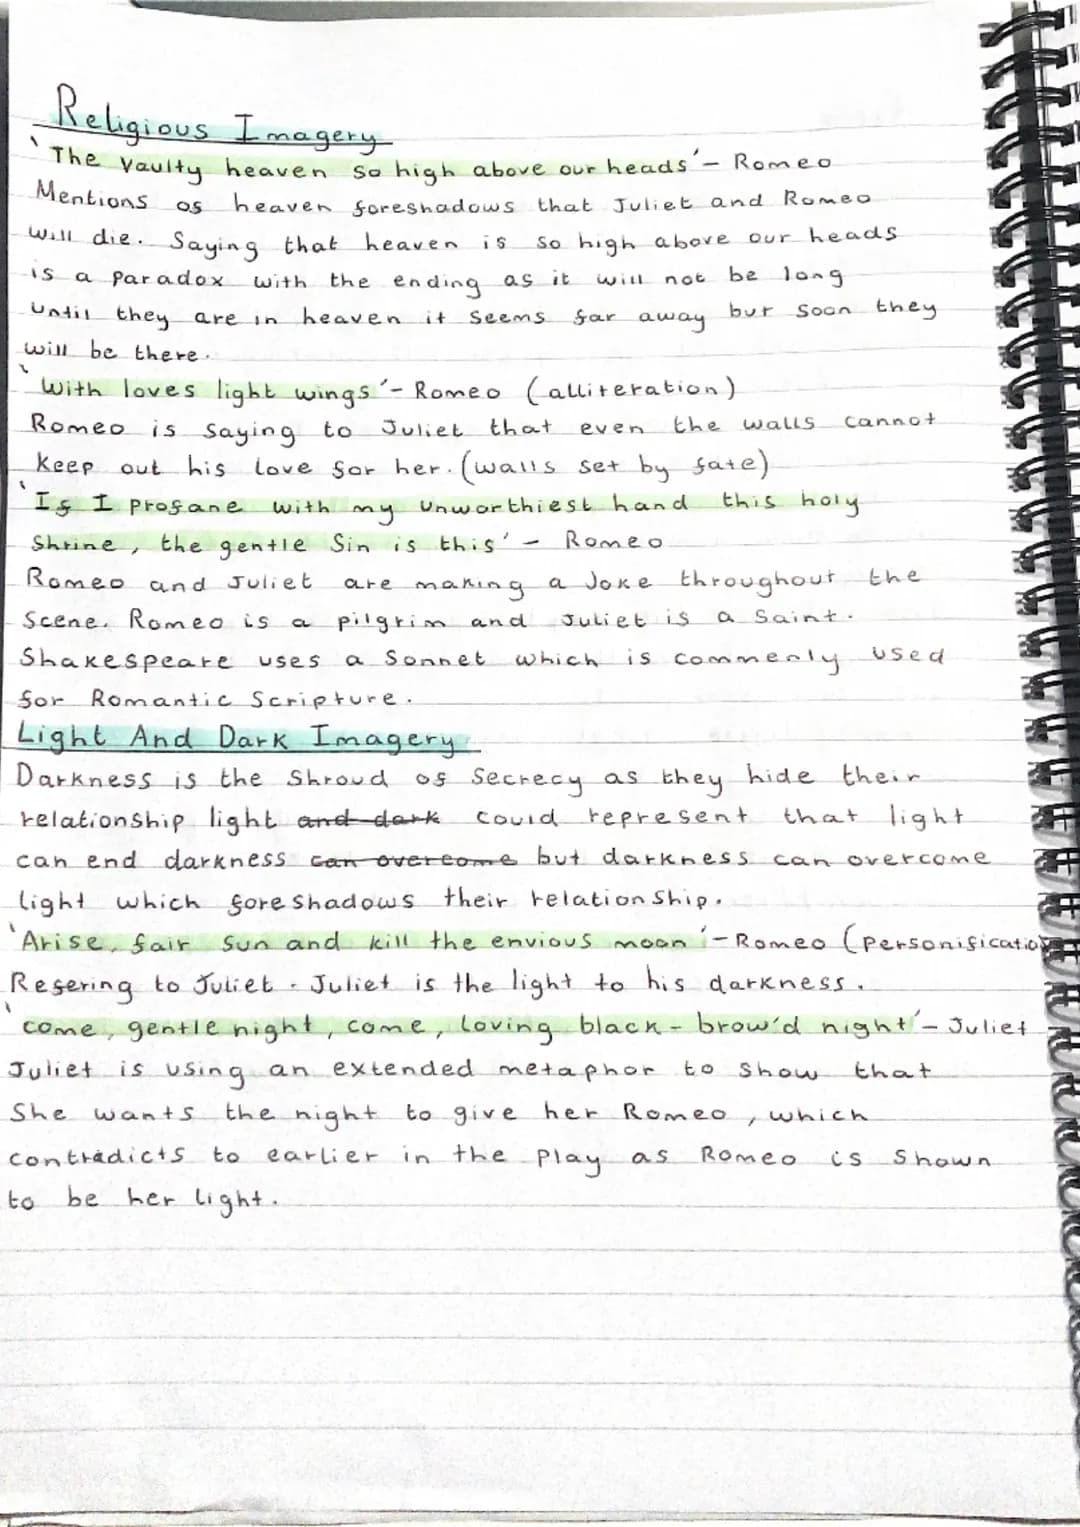 Religious Imagery
'The Vaulty heaven so high above our heads' - Romeo
Mentions of heaven foreshadows that Juliet and Romeo
will die. Saying that heaven is so high above our heads
is a paradox with the ending as it will not be long
until they are in heaven it seems far away but soon they
will be there.
'With loves light wings' - Romeo (alliteration)
Romeo is saying to Juliet that even the walls cannot
keep out his love for her. (walls set by fate)
'If I profane with my unworthiest hand this holy
Shrine, the gentle Sin is this' - Romeo
Romeo and Juliet are making a Joke throughout the
scene. Romeo is a pilgrim and Juliet is a Saint.
Shakespeare uses a Sonnet which is commenly used
for Romantic Scripture.
Light And Dark Imagery
Darkness is the Shroud of Secrecy as they hide their
relationship light and dark could represent that light
can end darkness can overcome but darkness can overcome
light which foreshadows their relationship.
'Arise, fair Sun and kill the envious moon' - Romeo (Personificatio
Refering to Juliet. Juliet is the light to his darkness.
'come, gentle night, come, loving black-brow'd night' - Juliet
Juliet is using an extended metaphor to show that
She wants the night to give her Romeo, which
contradicts to earlier in the play as Romeo is Shown
to be her light.